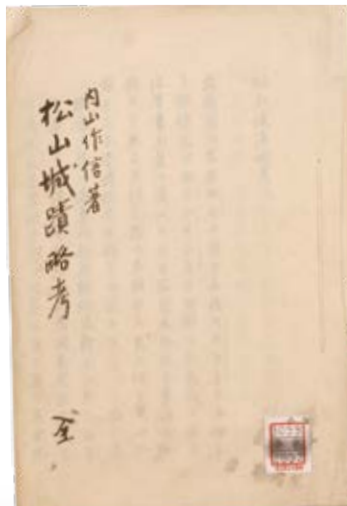 内山作信著
松山城蹟略考　全